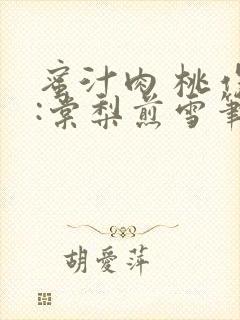 蜜汁肉桃作
:棠梨煎雪筆
胡愛萍